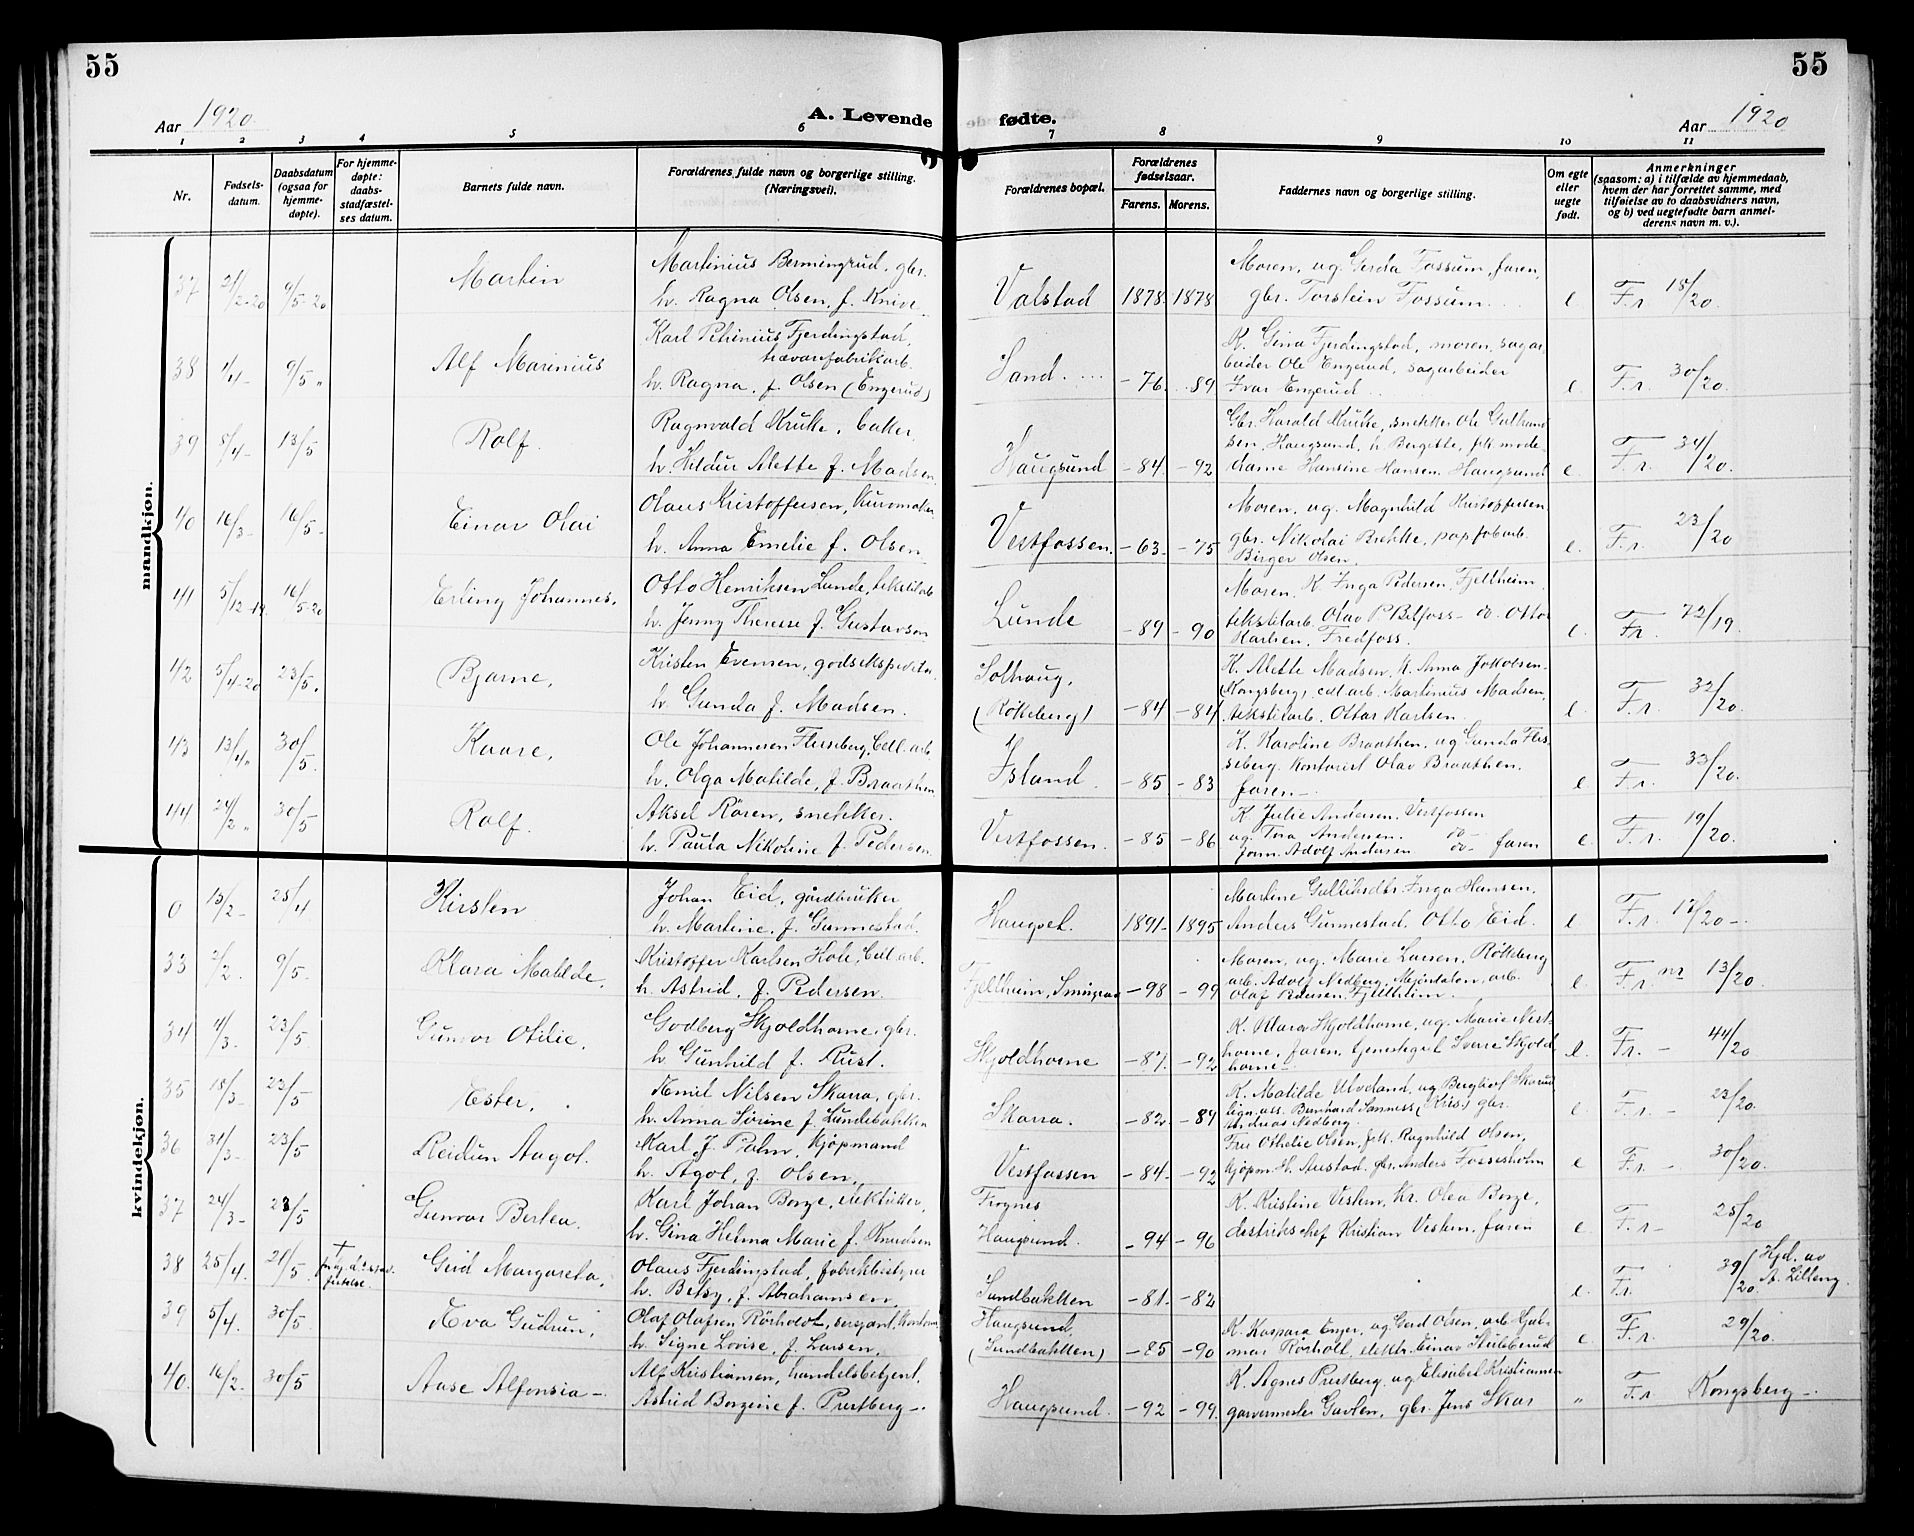 55
55
Aar 1920
A. Levende fødte.
Aar 1920
1 2 3 4 5 6 7 8 9 10 11
Nr.
Fødsels-
datum.
Daabsdatum
(ogsaa for
hjemme-
døpte).
For hjemme-
døpte:
daabs-
stadfæstel-
ses datum.
Barnets fulde navn.
Forældrenes fulde navn og borgerlige stilling.
(Næringsvei).
Forældrenes bopæl.
Forældrenes
fødselsaar.
Farens. Morens.
Faddernes navn og borgerlige stilling.
Om egte
eller
uegte
født.
Anmerkninger
(saasom: a) i tilfælde av hjemmedaab,
hvem der har forrettet samme, med
tilføielse av to daabsvidners navn,
og b) ved uegtefødte barn anmel-
derens navn m. v.).
mandkjøn.
37 21/2-20 9/5-20 Martin
Martinius Bermingrud, gbr.
h. Ragna Olsen, f. Knive
Valstad 1878 1878
Moren, ug. Gerda Fossum, faren,
gbr. Torstein Fossum
e. F.r. 18/20.
38 1/4- 9/5 " Alf Marinius
Karl Petinius Fjerdingstad,
trævarefabrikarb.
h. Ragna, f. Olsen (Engerud)
Sand. -76. -89
K. Gina Fjerdingstad, moren, sagar-
beider Ole Engerud, sagarbeider
Ivar Engerud
e. F.r. 30/20.
39 5/4- 13/5 Rolf.
Ragnvald Kruke, baker
h. Hildur Alette f. Madsen
Haugsund -84. -92
Gbr. Harald Kruke, snekker Ole Gulbrand-
sen, Haugsund, h. Bergitte, frk. mode-
dame Hansine Hansen, Haugsund
e. F.r. 34/20.
40 16/3- 16/5- Einar Olai
Olaus Kristoffersen,
h. Anna Emelie f. Olsen
Vestfossen. -63. -75
Moren, ug. Magnhild Kristoffersen
gbr. Nikolai Brekke, papfabarb.
Birger Olsen.
e. F.r. 23/20
41 5/12-19. 16/5-20 Erling Johannes.
Otto Henriksen Lunde, tekstilarb
h. Jenny Therese f. Gustavson
Lunde -89 -90
Moren, K. Inga Pedersen, Fjellheim
tekstilarb. Olav P. Bilfoss - do. Otto
Karlsen, Fredfoss.
e. Fr. 72/19.
42 5/4-20 23/5. Bjarne,
Kristen Evensen, godsekspeditør
h. Gunda f. Madsen.
Solhaug,
(Røkeberg) -84 -84
K. Alette Madsen, K. Anna Jakobsen
(Kongsberg), cell.arb. Martinius Madsen,
tekstilarb. Ottar Karlsen.
e. F.r. 32/20.
43 13/4" 30/5. Kaare,
Ole Johannesen Flesseberg, Cell.arb.
h. Olga Matilde, f. Braathen
Island. -85 -83
K. Karoline Braathen, ug Gunda Fles-
seberg. Kontorist Olav Braathen.
faren -
e. F.r. 33/20.
44 24/2 " 30/5 Rolf.
Aksel Røren, snekker.
h. Paula Nikoline f. Pedersen
Vestfossen. -85 -86
K. Julie Andersen, Vestfossen
ug. Tora Andersen. do -
form. Adolf Andersen do - faren
e. F.r. 19/20.
kvindekjøn.
0 13/2- 25/4 Kirsten
Johan Eid, gårdbruker
h. Martine, f. Gunnestad.
Haugset. 1891- 1895
Martine Gulliksdtr. Inga Hansen,
Anders Gunnestad, Otto Eid
e F.r. 17/20-
33 2/2. 9/5. Klara Matilde,
Kristoffer Karlsen Hole, Cell.arb.
h. Astrid, f. Pedersen
Fjellheim, -98 -99
Moren, ug. Marie Larsen, Røkeberg
arb. Adolf Nedberg, Mjøndalen, arb.
Olaf Pedersen, Fjellheim.
e. F.r. nr 13/20.
34 4/3. 23/5. Gunvor Otilie,
Godberg Skjoldhorne, gbr.
h. Gunhild f. Rust.
Skjoldhorne -87. -92
K. Klara Skjoldhorne, ug. Marie Vest-
horne, faren, Sverre Skjold-
horne -
e. Fr. - 44/20
35 18/3- 23/5 Ester,
Emil Nilsen Skarra, gbr.
h. Anna Sørine f. Lundebakken
Skarra. -82. -84
K. Matilde Ulveland, ug Bergljot Skarud
Bernhard Sanness (Kris) gbr.
Andreas Nedberg.
e F.r. - 23/20.
36 31/3- 23/5 Reidun Aagot.
Karl J. Palm, Kjøpmand
h. Agot, f. Olsen,
Vestfossen -84. -92
Fru Othelie Olsen, frk. Ragnhild Olsen,
kjøpm. H. Austad. gbr. Anders Fossesholm
e F.r. - 30/20.
37 24/3- 23/5 Gunvor Bertea.
Karl Johan Borge, elektriker,
h. Gina Helma Marie f. Knudsen
Frognes
Haugsund. -94 -96
K. Kristine Vestern, Kr. Olea Borge,
destrikschef Kristian Vestern, faren
e. F.r - 25/20
38 25/4. 21/5. † Gerd Margareta,
Olaus Fjerdingstad, fabrikbestyrer
h. Betsy, f. Abrahamsen,
Sundbakken -81. -82
e. F.r. 39/20. Hjd. av
A. Lilleng.
39 5/4. 30/5. Eva Gudrun,
Olaf Olafsen Rørholdt, sergeant,
h. Signe Lovise, f. Larsen,
Haugsund,
(Sundbakken) -85 -90
K. Kaspara Enger, ug Gerd Olsen, arb. Hjal-
mar Rørholt, elektr. Einar Stubberud
e. F.r. 29/20.
40. 16/2. 30/5 Aase Alfonsia -.
Alf Kristiansen, handelsbetjent,
Astrid Borgine f. Prestberg -.
Haugsund. -92 -99.
K. Agnes Prestberg, ug Elisabet Kristiansen
garvermester Gavlen, gbr. Jens Skar
" F.r. Kongsberg -.